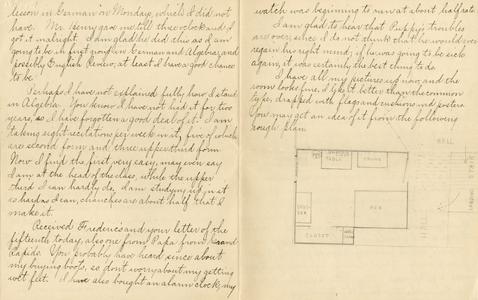 lesson in German on Monday, which I did not
have. Mr. Benny gave me till three o'clock and I
got it in alright. I am glad he did this as I am
going to be in first group in German and Algebra, and
possibly English Review, at least I have a good chance
to be.
Perhaps I have not explained fully how I stand
in Algebra. You know I have not had it for two
years, so I have forgotten a good deal of it. I am
taking eight recitations per week in it, five of which
are second form and three upper third form.
Now I find the first very easy, may even say
I am at the head of the class, while the upper
third I can hardly do, I am studying up in it
as hard as I can, chances are about half that I
make it.
Received Frederic's and your letter of the
fifteenth today, also one from Papa from Grand
Rapids. You probably have heard since about
my buying boots, so don't worry about my getting
wet feet. I have also bought an alarm clock, my
watch was beginning to run at about half rate.
I am glad to hear that Puppy's troubles
are over, since I do not think that he would ever
regain his right mind; if he was going to be sick
again, it was certainly the best thing to do.
I have all my pictures up now, and the
room looks fine, I like it better than the common
type, draped with flags and cushions and posters
You may get an idea of it from the following
rough plan
HALL
TABLE
CHAIR
BED
CLOSET